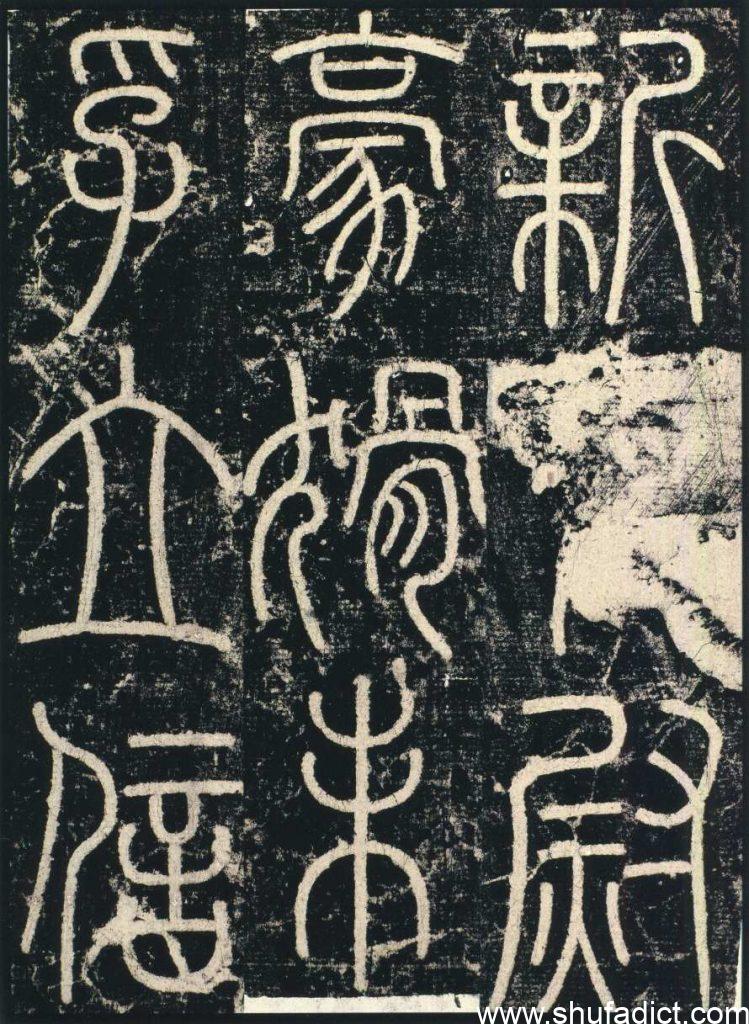 新尉
豪猾未
孚立信
www.shufadict.com